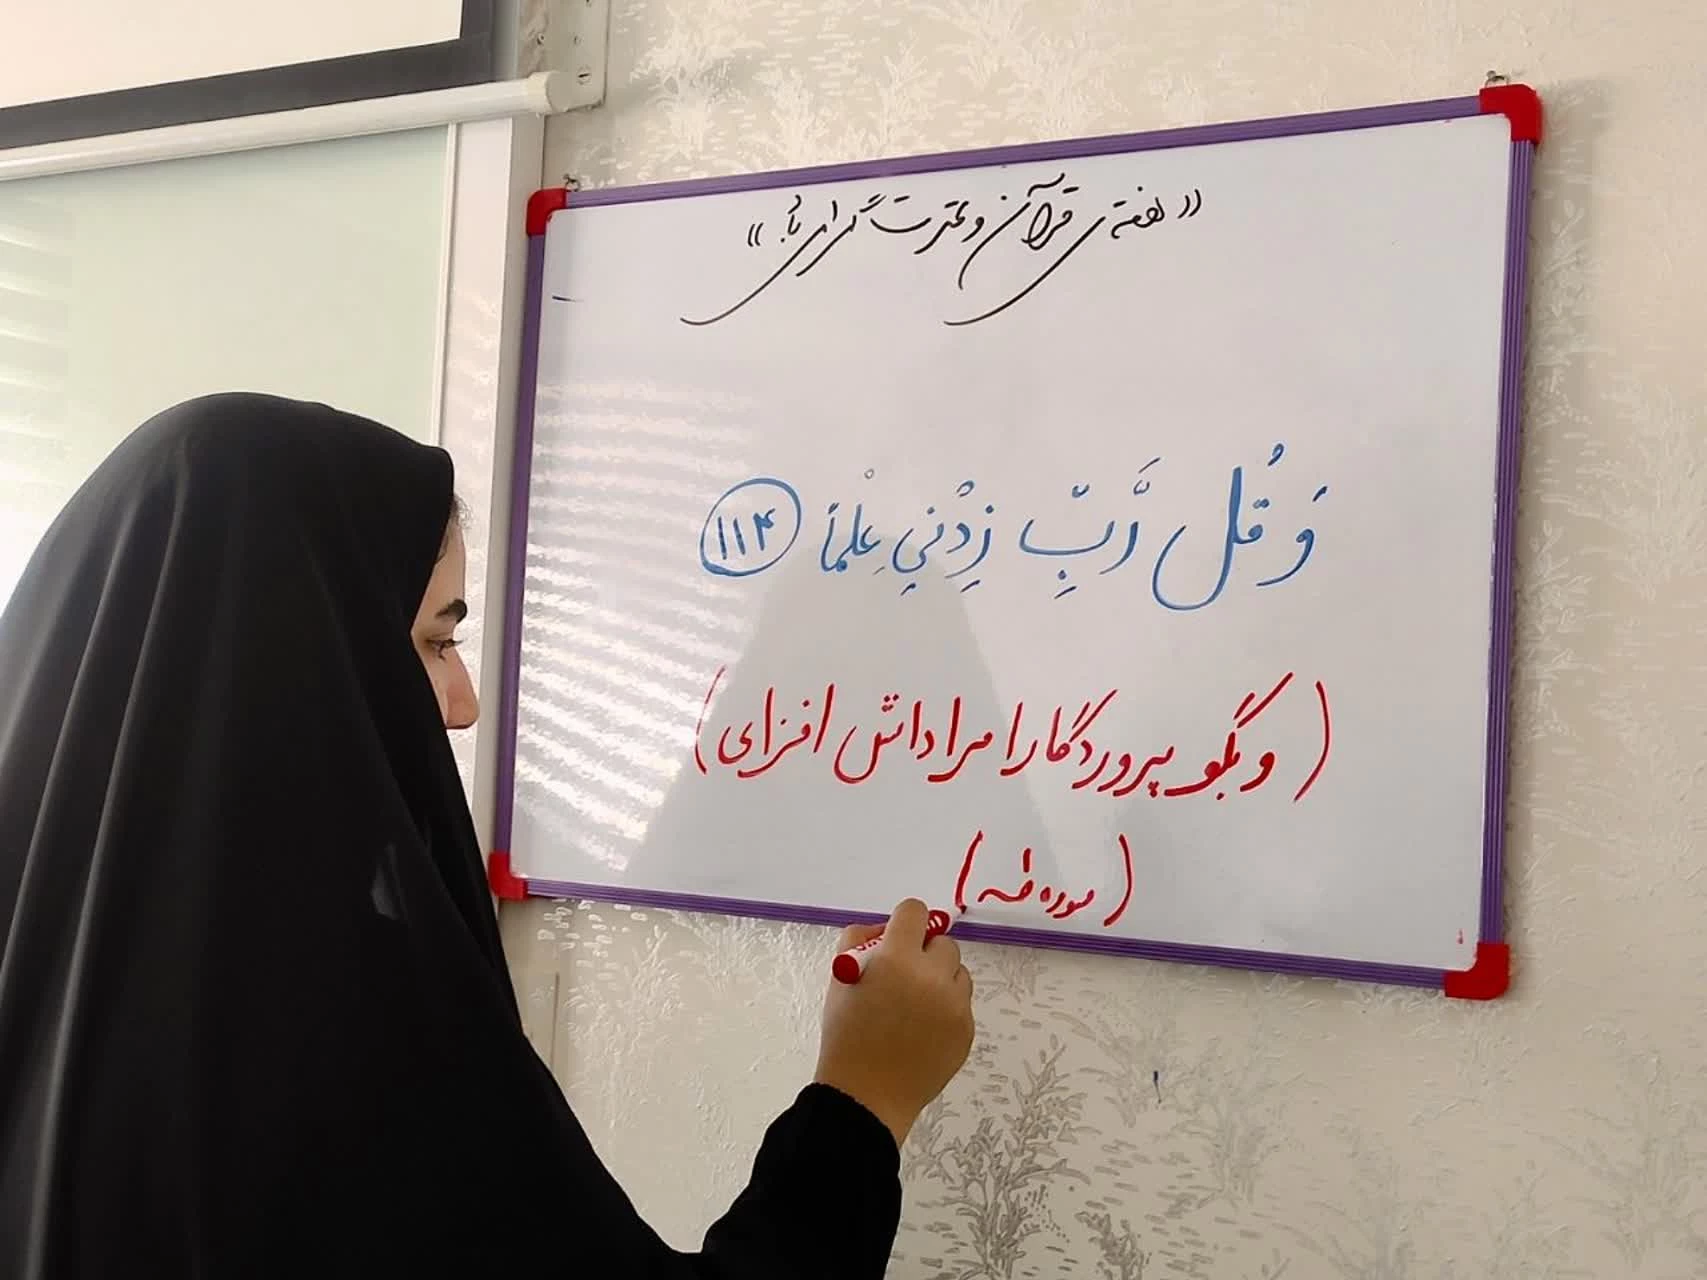 «هفته‌ی قرآن و عترت گرامی باد»
وَ قُل رَّبِّ زِدْنِي عِلْماً ۱۱۴
(و بگو پروردگارا مرا دانش افزای)
(سوره طه)